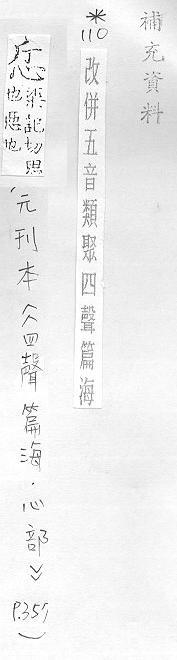 補充資料
*
110
改併五音類聚四聲篇海
梁記切
也恐也
(元刊本《四聲篇海·心部》
P.357)